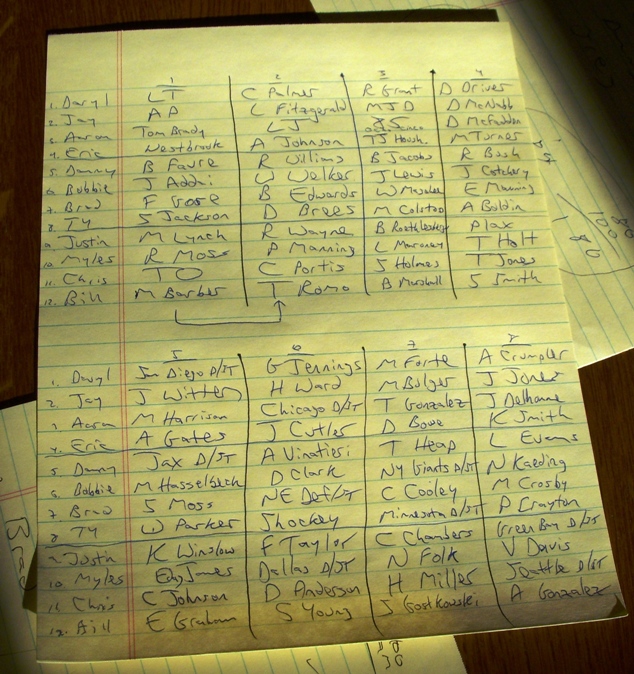 1 2 3 4
1. Daryl LT C Palmer R Grant D Driver
2. Jay AP L Fitzgerald MJD D McNabb
3. Aaron Tom Brady LJ D McFadden
4. Eric Westbrook A Johnson TJ Housh. M Turner
5. Danny B Favre R Willims B Jacobs R Bush
6. Bobbie J Addai W Welker J Lewis J Cotchery
7. Brad F Gore B Edwards W E Manning
8. TY S Jackson D Brees M Colston A Boldin
9. Justin M Lynch R Wayne B Roethlesber Plax
10. Myles R Moss P Manning L Maroney T Holt
11. Chris TO C Portis S Holmes T Jones
12. Bill M Barber T Romo B Marshall S Smith
5 6 7 8
1. Daryl San Diego D/ST G Jennings M Forte A Crumpler
2. Jay J Witten H Ward M Bulger J Jones
3. Aaron M Harrison Chicago D/ST T Gonzalez J Delhomme
4. Eric A Gates J Cutler D Bowe K Smith
5. Danny Jax D/ST A Vinatieri T Heap L Evans
6. Bobbie M Hasselbeck D Clark NY Giants D/ST N Kaeding
7. Brad S Moss NE Def/ST C Cooley M Crosby
8 TY W Parker Shockey Minnesota D/ST P Crayton
9. Justin K Winslow F Taylor C Chambers Green Bay D/ST
10 Myles Edg James Dallas D/ST N Folk V Davis
11 Chris C Johnson D Anderson H Miller Seattle D/ST
12. Bill E Graham S Young S Gostkowski A Gonzalez